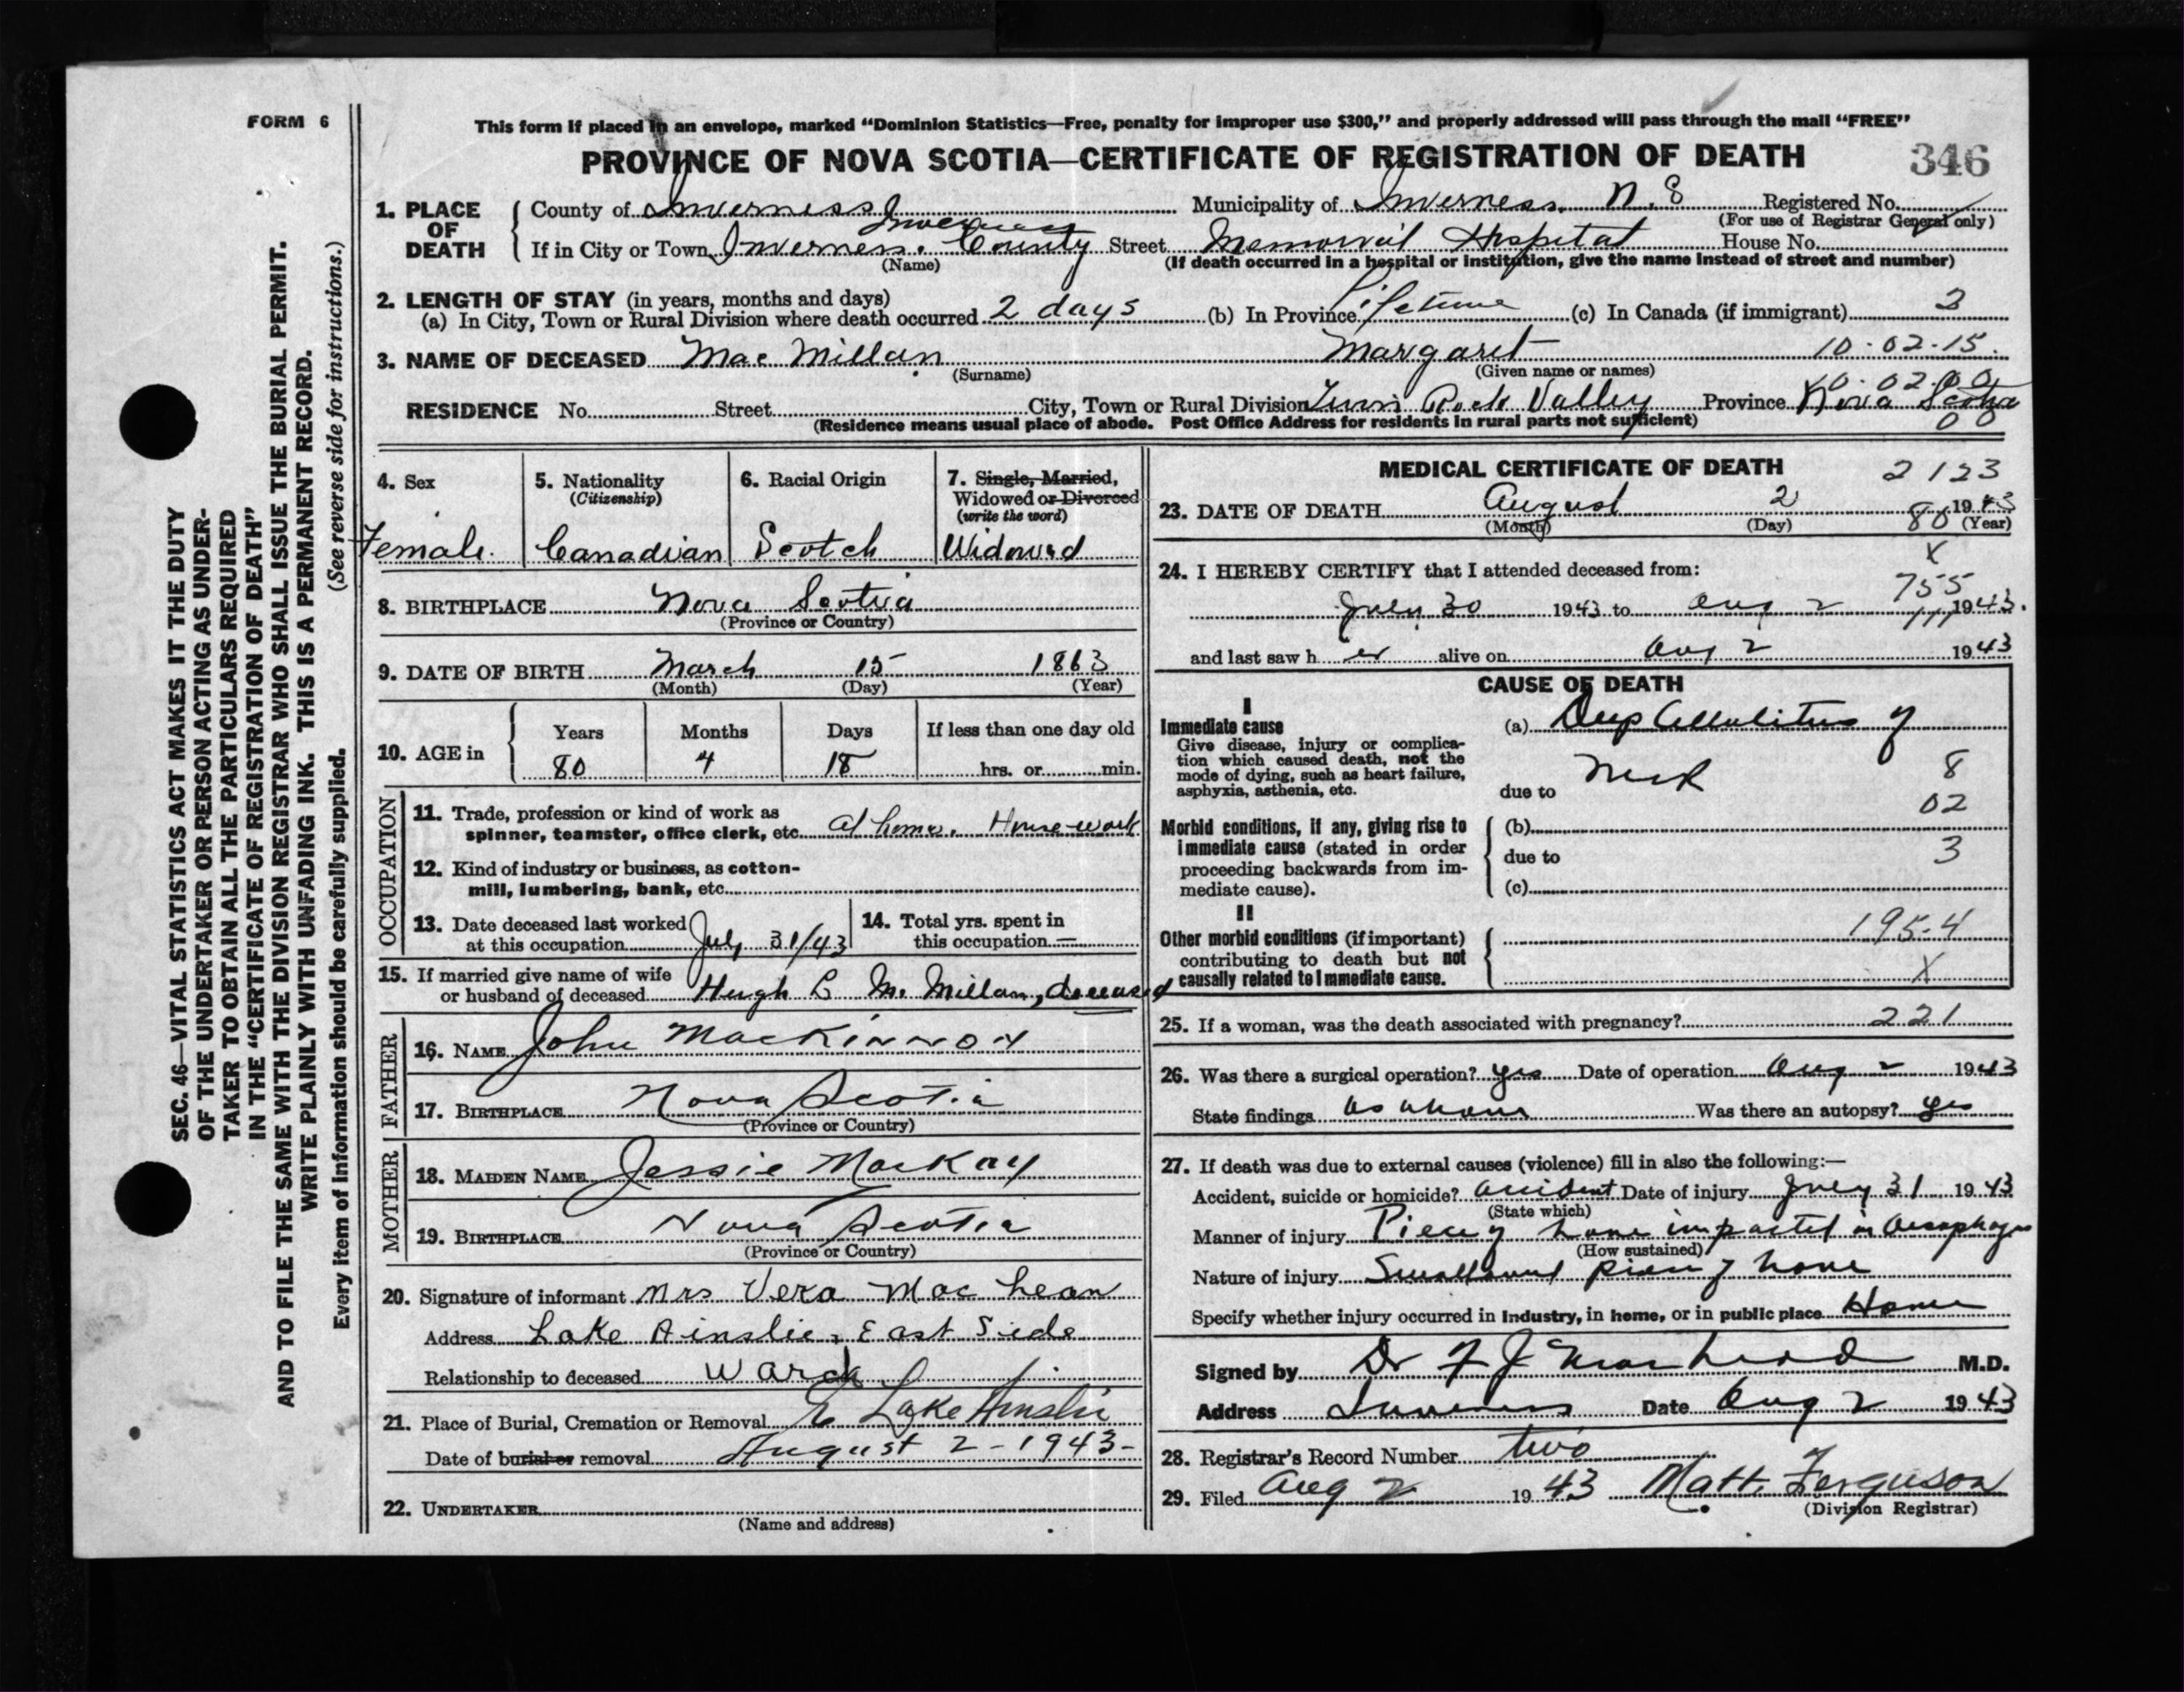 FORM 6
This form if placed in an envelope, marked "Dominion Statistics—Free, penalty for improper use $300," and properly addressed will pass through the mail "FREE"
PROVINCE OF NOVA SCOTIA—CERTIFICATE OF REGISTRATION OF DEATH 346
SEC. 46—VITAL STATISTICS ACT MAKES IT THE DUTY
OF THE UNDERTAKER OR PERSON ACTING AS UNDER-
TAKER TO OBTAIN ALL THE PARTICULARS REQUIRED
IN THE "CERTIFICATE OF REGISTRATION OF DEATH"
AND TO FILE THE SAME WITH THE DIVISION REGISTRAR WHO SHALL ISSUE THE BURIAL PERMIT.
WRITE PLAINLY WITH UNFADING INK. THIS IS A PERMANENT RECORD.
Every item of information should be carefully supplied. (See reverse side for instructions.)
1. PLACE OF DEATH
County of Inverness Municipality of Inverness. N.S Registered No.
(For use of Registrar General only)
If in City or Town Inverness. Inverness County Street Memorial Hospital House No.
(Name) (If death occurred in a hospital or institution, give the name instead of street and number)
2. LENGTH OF STAY (in years, months and days)
(a) In City, Town or Rural Division where death occurred 2 days (b) In Province Lifetime (c) In Canada (if immigrant)
3. NAME OF DECEASED Mac Millan Margaret 10-02-15.
(Surname) (Given name or names)
RESIDENCE No. Street City, Town or Rural Division Twin Rock Valley Province Nova Scotia
(Residence means usual place of abode. Post Office Address for residents in rural parts not sufficient) 00
4. Sex
Female.
5. Nationality
(Citizenship)
Canadian
6. Racial Origin
Scotch
7. Single, Married,
Widowed or Divorced
(write the word)
Widowed
8. BIRTHPLACE Nova Scotia
(Province or Country)
9. DATE OF BIRTH March 15 1863
(Month) (Day) (Year)
10. AGE in
Years Months Days If less than one day old
80 4 18 hrs. or min.
OCCUPATION
11. Trade, profession or kind of work as
spinner, teamster, office clerk, etc. at home. House-work
12. Kind of industry or business, as cotton-
mill, lumbering, bank, etc.
13. Date deceased last worked
at this occupation July 31/43
14. Total yrs. spent in
this occupation —
15. If married give name of wife
or husband of deceased Hugh B Mc Millan, deceased
FATHER
16. NAME John MacKinnon
17. BIRTHPLACE Nova Scotia
(Province or Country)
MOTHER
18. MAIDEN NAME Jessie MacKay
19. BIRTHPLACE Nova Scotia
(Province or Country)
20. Signature of informant Mrs Vera Mac Lean
Address Lake Ainslie, East Side
Relationship to deceased Ward
21. Place of Burial, Cremation or Removal E Lake Ainslie
Date of burial or removal August 2-1943-
22. UNDERTAKER
(Name and address)
MEDICAL CERTIFICATE OF DEATH 2123
23. DATE OF DEATH August 2 1943
(Month) (Day) 80 (Year)
X
24. I HEREBY CERTIFY that I attended deceased from:
755
July 30 1943 to Aug 2 1943.
and last saw her alive on Aug 2 1943
CAUSE OF DEATH
I
Immediate cause
Give disease, injury or complica-
tion which caused death, not the
mode of dying, such as heart failure,
asphyxia, asthenia, etc.
(a) Deep Cellulitus of
Neck 8
due to 02
Morbid conditions, if any, giving rise to
immediate cause (stated in order
proceeding backwards from im-
mediate cause).
(b)
due to 3
(c)
II
Other morbid conditions (if important)
contributing to death but not
causally related to immediate cause.
195-4
X
25. If a woman, was the death associated with pregnancy? 221
26. Was there a surgical operation? Yes Date of operation Aug 2 1943
State findings as above Was there an autopsy? Yes
27. If death was due to external causes (violence) fill in also the following:—
Accident, suicide or homicide? Accident Date of injury July 31 1943
(State which)
Manner of injury Piece of bone impacted in Oesophagus
(How sustained)
Nature of injury Swallowed piece of bone
Specify whether injury occurred in industry, in home, or in public place Home
Signed by Dr F J M.D.
Address Inverness Date Aug 2 1943
28. Registrar's Record Number two
29. Filed Aug 2 1943 Matt. Ferguson
(Division Registrar)